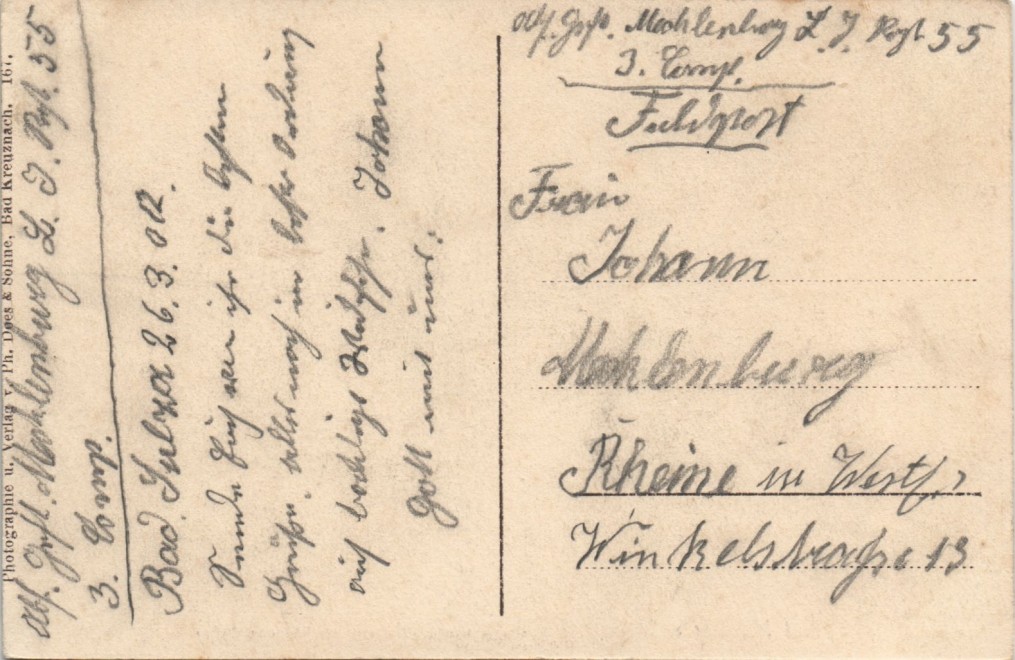 Abs. Gefr. Mecklenburg L. I. Rgt. 55
3. Comp.
Feldpost
Frau
Johann
Mecklenburg
Rheine in Westf.
Winkelstraße 13
Abs. Gefr. Mecklenburg L. I. Rgt. 55
3. Comp.
Bad. 26. 3.
Sende Euch von hier die besten
Grüße. alles noch in bester Ordnung
auf Johann
Gott mit uns.
Photographie u. Verlag v. Ph. Does & Söhne, Bad Kreuznach. 167.